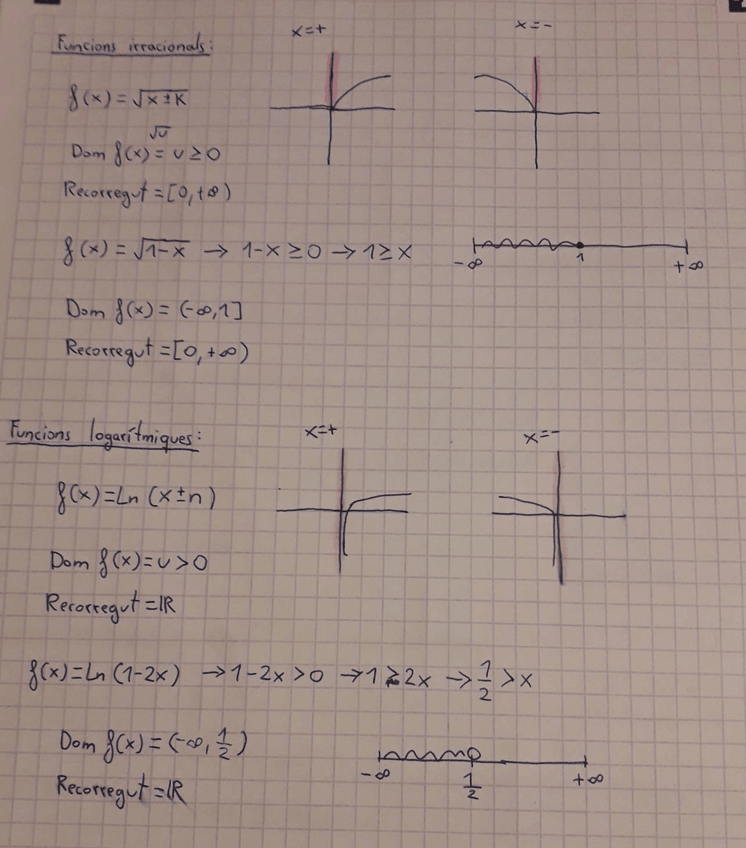 Funcions irracionals:
x=+
x=-
f(x)=√x±K
√u
Dom f(x)= u≥0
Recorregut=[0,+∞)
f(x)=√1-x → 1-x≥0 → 1≥x
-∞ 1 +∞
Dom f(x)=(-∞,1]
Recorregut=[0,+∞)
Funcions logarítmiques:
x=+
x=-
f(x)=Ln(x±n)
Dom f(x)=u>0
Recorregut=ℝ
f(x)=Ln(1-2x) →1-2x>0 →1>2x →1/2>x
Dom f(x)=(-∞,1/2)
-∞ 1/2 +∞
Recorregut=ℝ